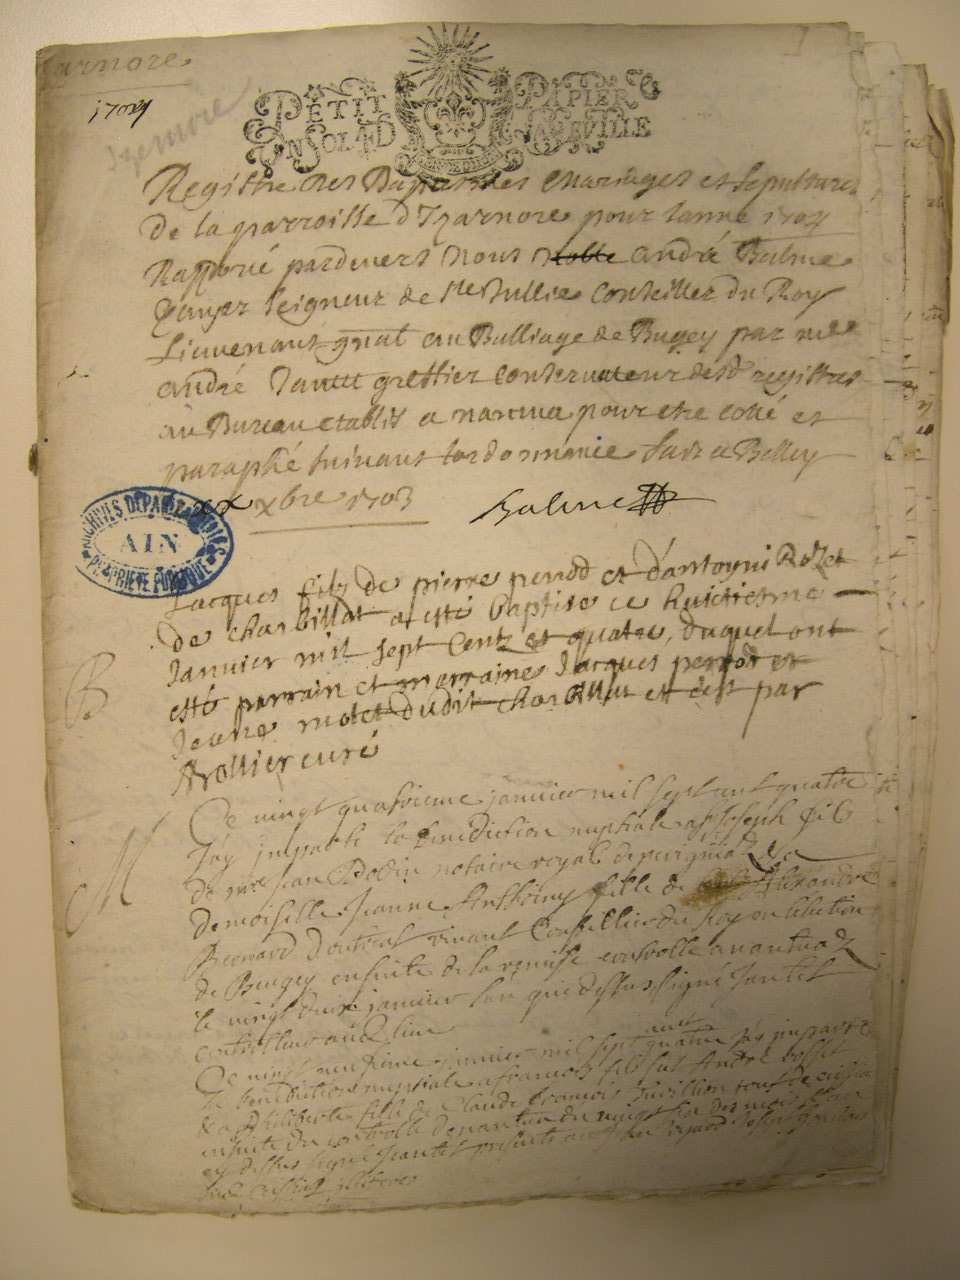 Izarnore
1704
Izernore
PETIT PAPIER
UN SOL LAD FEVILLE
Registre des Baptesmes Mariages et Sepultures
de la parroisse d'Izarnore pour lanne 1704
Rapporté pardevers Nous noble andré Balme
Escuyer Seigneur de Ste Jullie Conseiller du Roy
Lieutenant gnal au Balliage de Bugey par mre
andré Jantet greffier Conservateur desd registres
au Bureau establis a nantua pour etre cotté et
paraphé suivant lordonnance fait a Belley
xx xbre 1703
Balme
ARCHIVES DEPARTEMENTALES
AIN
PROPRIETE PUBLIQUE
B
Jacques filz de pierre perrod et d'antoyni Rozet
de charbillat a esté baptise ce huictiesme
Janvier mil sept Centz et quatre, duquel ont
esté parrain et marraine Jacques perrod et
Jeane molet dudit charbillat et c'est par
Arollier curé
M
Ce vingt quatrieme janvier mil sept cent quatre
Jay imparti la benediction nuptiale a Joseph fils
de mre jean Bodin notaire royal de perignat & a
demoiselle Jeanne Anthoiny fille de Alexandre
Bernard d'ortoral vivant Conseillier du Roy en lelection
de Bugey ensuite de la remise controlle a nantua
le vingt janvier lan que dessus signé Jantet
controlleur
Ce vingt neufieme janvier mil sept cent quatre jay imparti
la benediction nuptiale a francois fils fut André
& a philiberte fille de Claude francois Juvillion tous de
ensuite du controlle de nantua du vingt six des mois et an
cy dessus signé Jantet presents